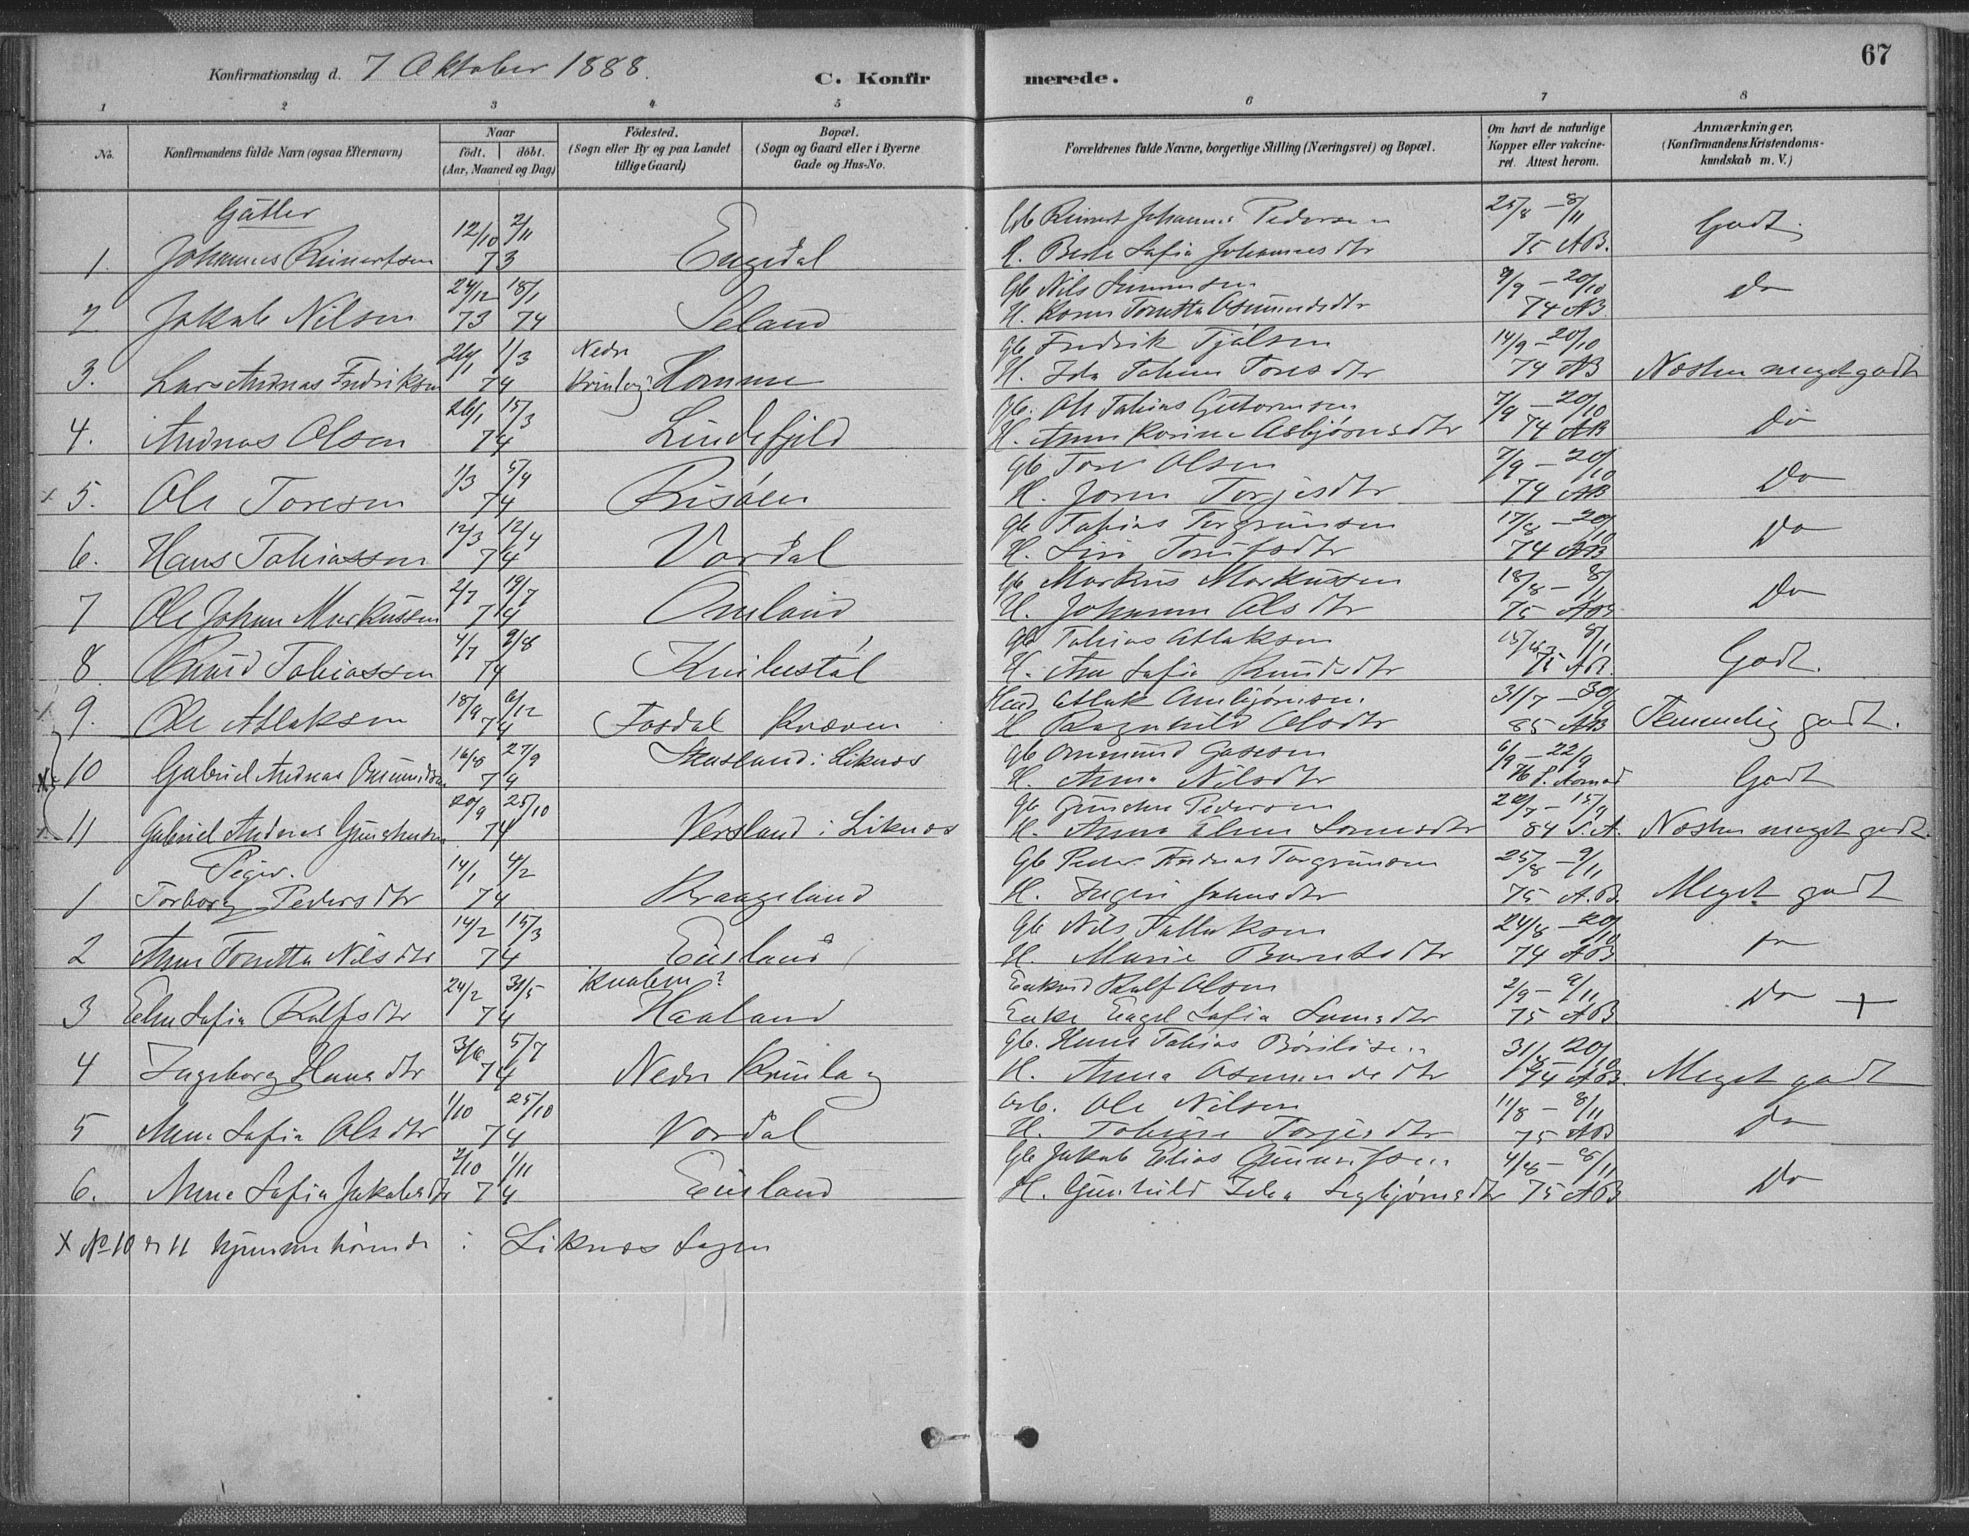 Konfirmationsdag d. 7 Oktober 1888. C. Konfirmerede. 67
1 2 3 4 5 6 7 8
No.
Konfirmandens fulde Navn (ogsaa Efternavn)
Naar
født. døbt.
(Aar, Maaned og Dag)
Fødested.
(Sogn eller By og paa Landet tillige Gaard)
Bopæl.
(Sogn og Gaard eller i Byerne Gade og Hus-No.
Forældrenes fulde Navne, borgerlige Stilling (Næringsvei) og Bopæl.
Om havt de naturlige Kopper eller vakcineret. Attest herom.
Anmærkninger.
(Konfirmandens Kristendomskundskab m. V.)
Gutter
12/10 2/11 Gb Reinert Johannes Pedersen 25/8 – 8/11
1. Johannes Reinertsen 73 Engedal H. Berte Sofia Johannesdtr 75 AB. Godt.
24/12 18/1 Gb Nils 9/9 – 20/10
2 Jakob Nilsen 73 74 Seland H. Karen Tonette Osmundsdtr 74 AB do
26/1 1/3 Nedre Gb Fredrik Tjølsen 14/9 – 20/10
3. Lars Andreas Fredriksen 74 Homme H. Ida Tobine Toresdtr 74 AB Næsten meget godt
26/1 15/3 Gb. Ole Tobias Gutormsen 7/9 – 20/10
4. Andreas Olsen 74 Lindefjeld H. Anne Karine Asbjørnsdtr 74 AB Do
1/3 5/4 Gb Tore Olsen 7/9 – 20/10
x 5. Ole Toresen 74 Risøen H. Joren Torjesdtr 74 AB Do
12/3 12/4 Gb Tobias Torgrimsen 17/8 – 20/10
6. Hans Tobiassen 74 Vordal H. Siri 74 AB Do
2/7 19/7 Gb Markus Markussen 18/8 – 8/11
7 Ole Johan Markussen 74 Omland H. Johanne Olsdtr 75 AB Do
4/7 9/8 Gb Tobias Atlaksen 8/11
8. Knud Tobiassen 74 H. Ane Sofia Knudsdtr 75 AB. Godt.
18/9 6/12 Atlak 31/7 – 30/9
9. Ole Atlaksen 74 Fosdal Kvæven H Ragnhild Olsdtr 85 AB Temmelig godt.
16/8 27/9 i Liknes Gb Osmund 6/9 – 22/9
x 10 Gabriel Andreas Osmundsen 74 H. Anna Nilsdtr 76 Godt
20/9 25/10 Gb Pedersen 15/9
11 Gabriel Andreas 74 Versland i Liknes H. Anna Elene 84 S. A. Næsten meget godt
Piger.
14/1 4/2 Gb Peder Andreas Torgrimsen 25/8 – 9/11
1 Torborg Pedersdtr 74 Kraageland H. Ingeri Johnsdtr 75 A.B. Meget godt
14/2 15/3 Gb Nils Tallaksen 24/8 – 20/10
2 Anne Tonette Nilsdtr 74 Eiesland H. Marie Berntsdtr 74 AB
24/2 31/5 Kvalem? Enkemd Rolf Olsen 2/9 – 9/11
3 Elene Sofia Rolfsdtr 74 Haaland Enke Engel Sofia 75 AB Do +
3/6 5/7 Gb. Hans Tobias 31/8 – 20/10
4 Ingeborg Hansdtr 74 Nedre H. Anna Osmundsdtr 74 AB Meget godt
1/10 25/10 Arb. Ole Nilsen 11/8 – 8/11
5 Anne Sofia Olsdtr 74 Vordal H. Tobine Torjesdtr 75 AB Do
2/10 1/11 Gb Jakob Elias Gunnufsen 4/8 – 8/11
6. Anne Sofia Jakobsdtr 74 Eiesland H. Gunhild Segbjørnsdtr 75 AB Do
x No 10 & 11 hjemmehørende i Liknes Sogn